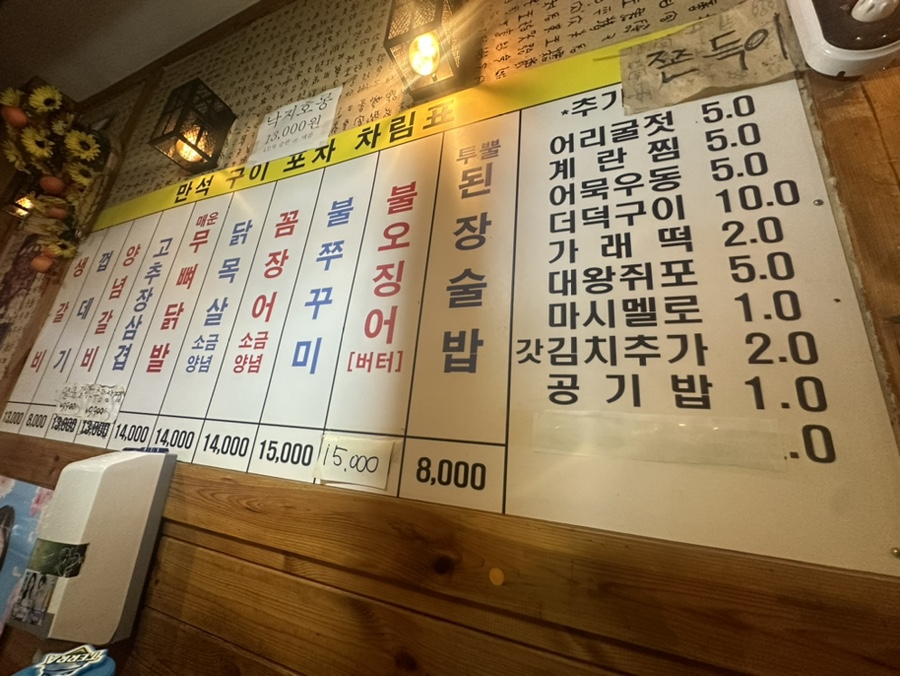 쫀득이
낙지호롱
13,000원
만석 구이 포차 차림표
생갈비
13,000
껍데기
8,000
양념갈비
13,000
고추장삼겹
13,000
매운
무뼈닭발
14,000
닭목살
소금
양념
14,000
꼼장어
소금
양념
14,000
불쭈꾸미
15,000
불오징어
[버터]
15,000
투뿔
된장술밥
8,000
*추가
어리굴젓 5.0
계란찜 5.0
어묵우동 5.0
더덕구이 10.0
가래떡 2.0
대왕쥐포 5.0
마시멜로 1.0
갓김치추가 2.0
공기밥 1.0
.0
TERRA